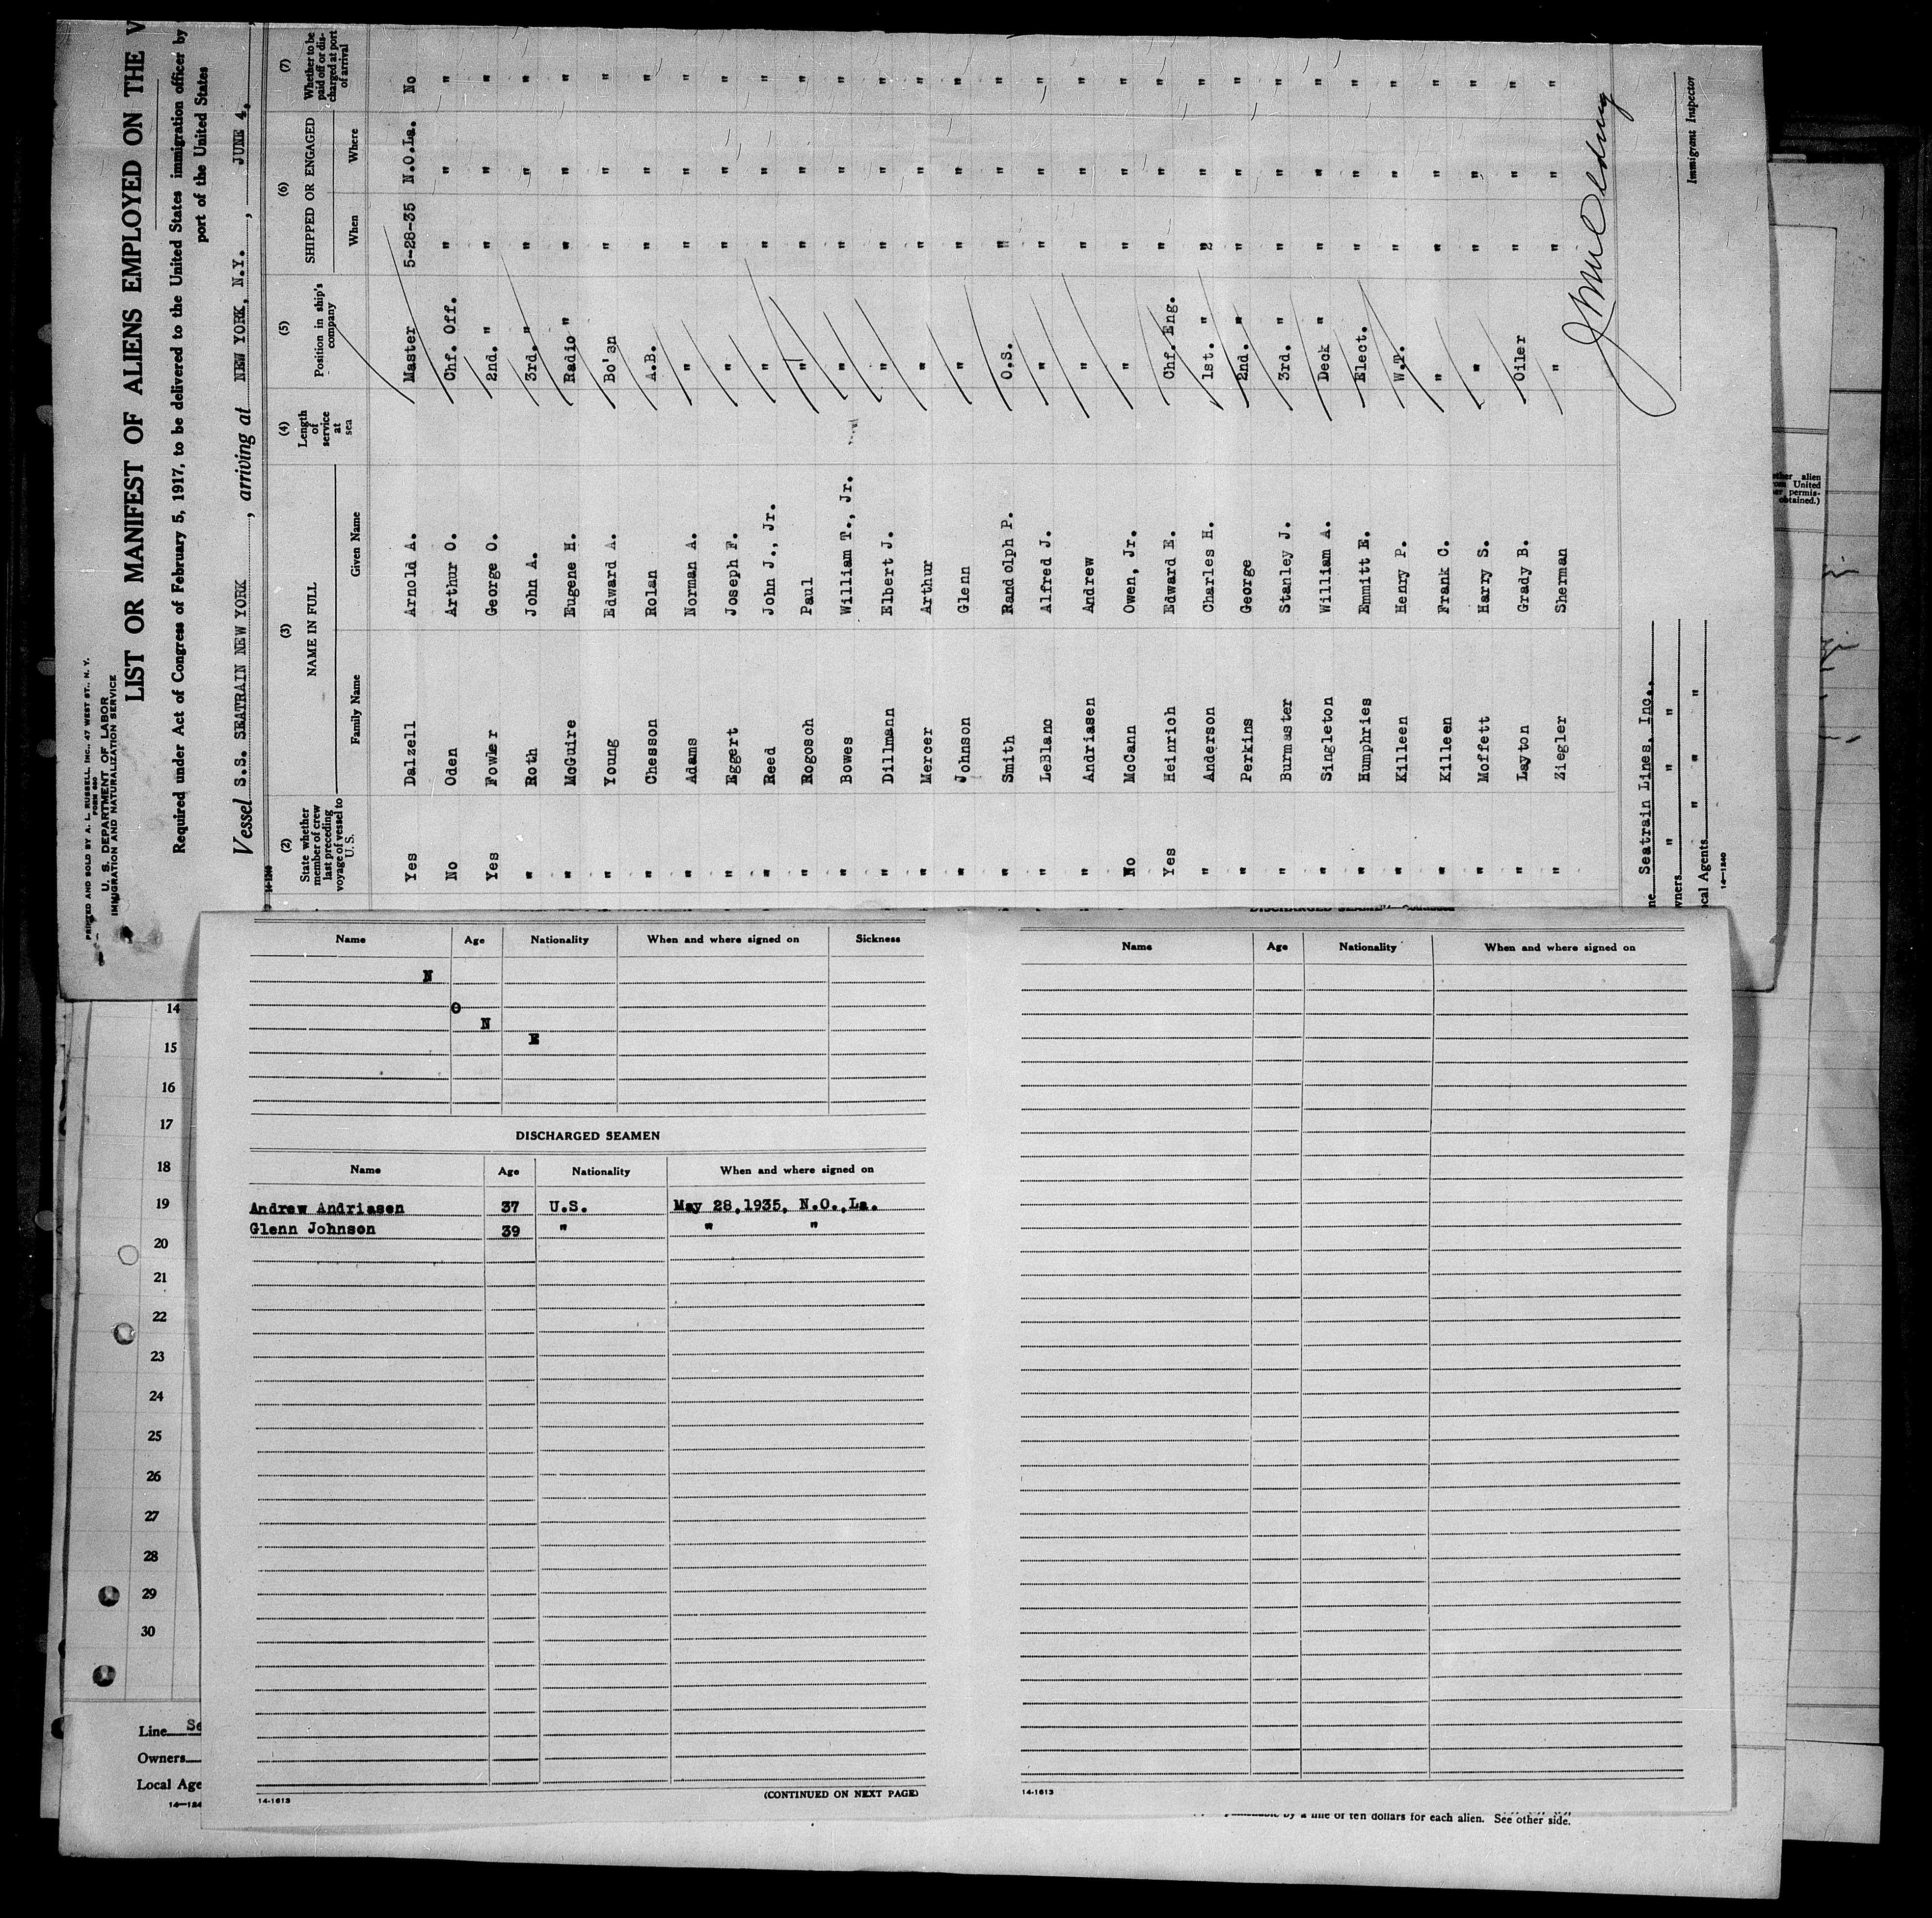 PRINTED AND SOLD BY A. L. RUSSELL, INC., 47 WEST ST., N. Y.
U. S. DEPARTMENT OF LABOR
IMMIGRATION AND NATURALIZATION SERVICE
LIST OR MANIFEST OF ALIENS EMPLOYED ON THE V
Required under Act of Congress of February 5, 1917, to be delivered to the United States immigration officer by
port of the United States
Vessel S.S. SEATRAIN NEW YORK, arriving at NEW YORK, N.Y., JUNE 4,
(2) (3) (4) (5) (6) (7)
State whether member of crew last preceding voyage of vessel to U. S. NAME IN FULL Length of service at sea Position in ship's company SHIPPED OR ENGAGED Whether to be paid off or discharged at port of arrival
Family Name Given Name When Where
Yes Dalzell Arnold A. Master 5-28-35 N.O.La. No
No Oden Arthur O. Chf. Off. " " "
Yes Fowler George O. 2nd. " " " "
" Roth John A. 3rd. " " " "
" McGuire Eugene H. Radio " " " "
" Young Edward A. Bo'sn " " "
" Chesson Rolan A.B. " " "
" Adams Norman A. " " " "
" Eggert Joseph F. " " " "
" Reed John J., Jr. " " " "
" Rogosch Paul " " " "
" Bowes William T., Jr. " " " "
" Dillmann Elbert J. " " " "
" Mercer Arthur " " " "
" Johnson Glenn " " " "
" Smith Randolph P. O.S. " " "
" LeBlanc Alfred J. " " " "
" Andriasen Andrew " " " "
No McCann Owen, Jr. " " " "
Yes Heinrich Edward E. Chf. Eng. " " "
" Anderson Charles H. 1st. " " " "
" Perkins George 2nd. " " " "
" Burmaster Stanley J. 3rd. " " " "
" Singleton William A. Deck " " " "
" Humphries Emmitt E. Elect. " " "
" Killeen Henry P. W.T. " " "
" Killeen Frank C. " " " "
" Moffett Harry S. " " " "
" Layton Grady B. Oiler " " "
" Ziegler Sherman " " " "
Immigrant Inspector
ne Seatrain Lines, Inc.,
wners " " "
ocal Agents " " "
14—1240
Name Age Nationality When and where signed on Sickness
N
O
N
E
DISCHARGED SEAMEN
Name Age Nationality When and where signed on
Andrew Andriasen 37 U.S. May 28,1935, N.O.,La.
Glenn Johnson 39 " " "
(CONTINUED ON NEXT PAGE)
14-1613
Name Age Nationality When and where signed on
14-1613
14
15
16
17
18
19
20
21
22
23
24
25
26
27
28
29
30
Line Se
Owners
Local Age
14—124
by a fine of ten dollars for each alien. See other side.
ether alien
om United
er permis-
obtained.)